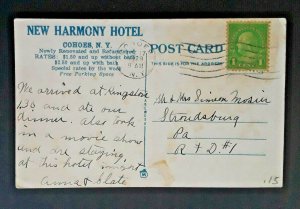 NEW HARMONY HOTEL
COHOES, N. Y.
Newly Renovated and Refurnished
RATES: $1.50 and up without bath
$2.50 and up with bath
Special rates by the week
Free Parking Space
POST CARD
1
We arrived at Kingston
and ate our
dinner. also took
in a movie show
and are staying
at this hotel tonight
Anna & Slate
Mr & Mrs Simon Mosier
Stroudsburg
Pa
R + D. #1
.15